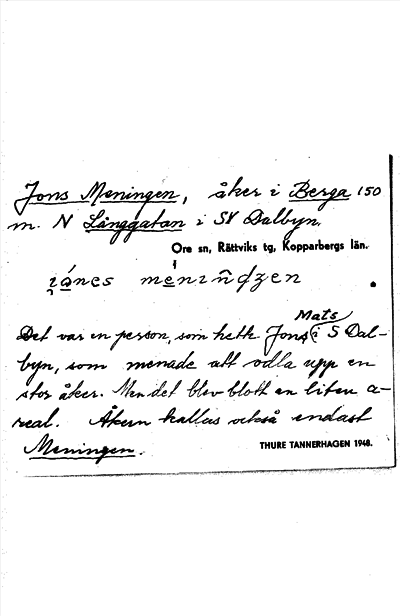 Jons Meningen, åker i Berga 150
m. N Långgatan i SV Dalbyn.
Ore sn, Rättviks tg, Kopparbergs län.
Mats
Det var en person, som hette Jons i S Dal-
byn, som menade att odla upp en
stor åker. Men det blev blott en liten a-
real. Åkern kallas också endast
Meningen.
THURE TANNERHAGEN 1948.